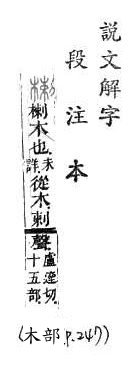 說文解字
段注本
楋 楋木也未詳從木剌聲盧達切十五部
(木部 p.247)